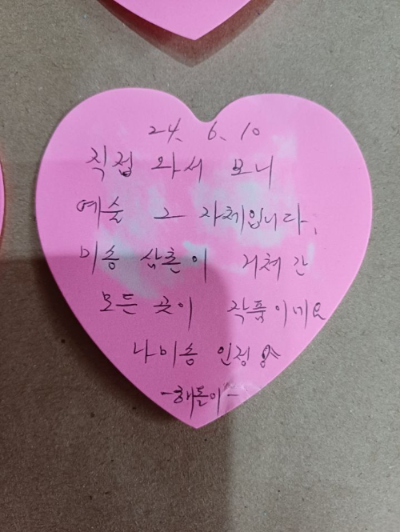 24. 6. 10
직접 와서 보니
예술 그 자체입니다.
미송 삼촌이 거쳐 간
모든 곳이 작품이네요
나미송 인정
-해돌이-